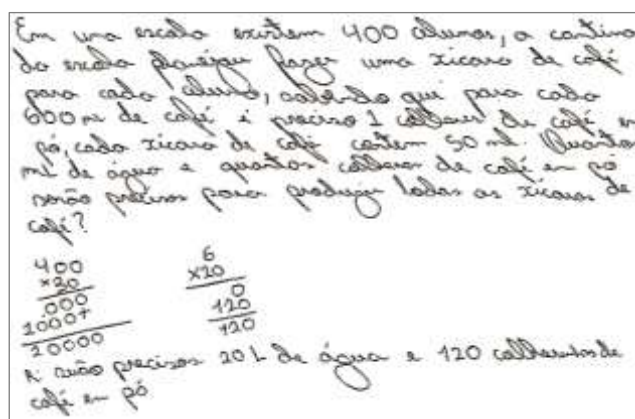 Em uma escola existem 400 alunos, a cantina
da escola planejou fazer uma xicara de café
para cada aluno, sabendo que para cada
600 ml de café é preciso 1 colher de café em
pó, cada xicara de café contem 50 ml. Quantos
ml de água e quantas colheres de café em pó
serão precisos para produzir todas as xicaras de
café?
400 6
x50 x20
000 0
2000+ 120
20000 120
R: serão precisos 20 L de água e 120 de
café em pó